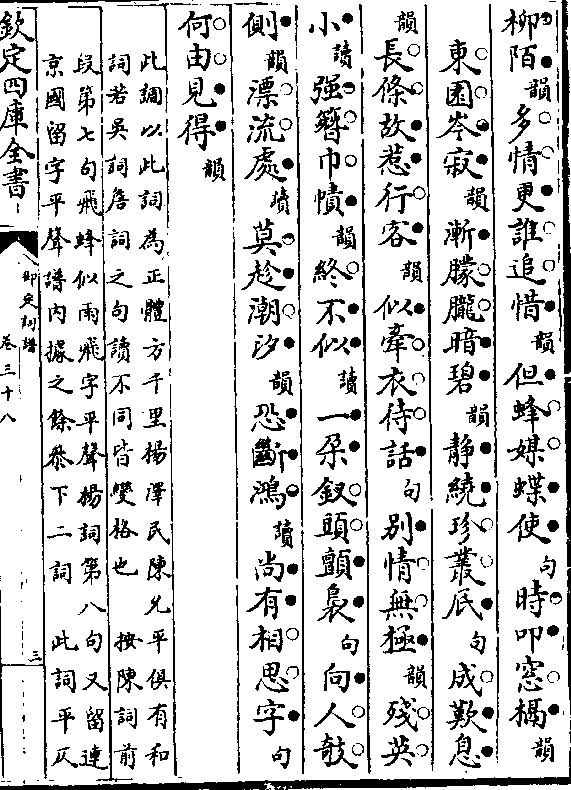 柳陌韻多情更誰追惜韻但蜂媒蝶使句時叩窓槅韻
東園岑寂韻漸朦朧暗碧韻靜繞珍叢底句成歎息
韻長條故惹行客韻似牽衣待話句别情無極韻殘英
小讀强簪巾幘韻終不似讀一朵釵頭顫裊句向人欹
側韻漂流處讀莫趁潮汐韻恐斷鴻讀尚有相思字句
何由見得韻
此調以此詞為正體方千里楊澤民陳允平俱有和
詞若吳詞詹詞之句讀不同皆變格也 按陳詞前
段第七句飛蜂似雨飛字平聲楊詞第八句又留連
京國留字平聲譜内據之餘叅下二詞 此詞平仄
欽定四庫全書
御定詞譜
卷三十八
三